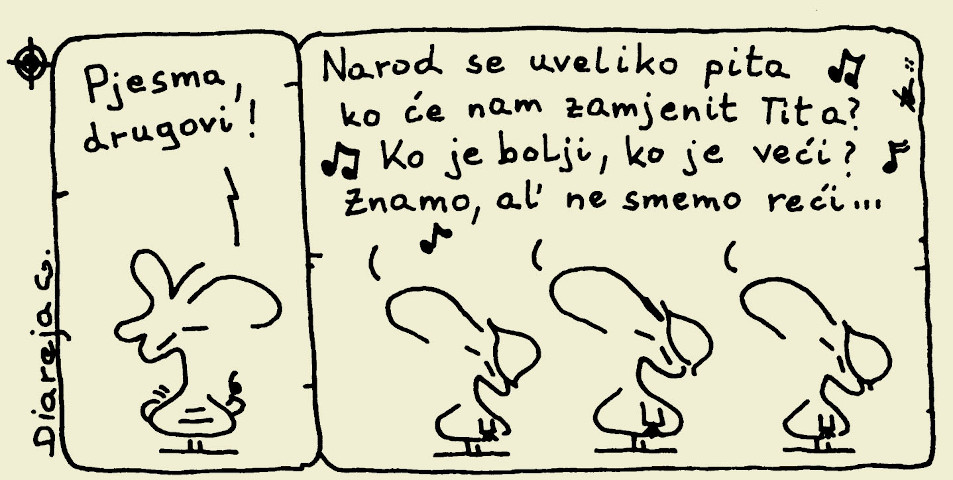 Pjesma,
drugovi!
Narod se uveliko pita
ko će nam zamjenit Tita?
Ko je bolji, ko je veći?
Znamo, al' ne smemo reći...
Diareja